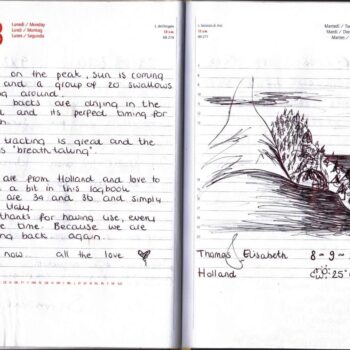 Lunedì / Monday
Lundi / Montag
Lunes / Segunda
on the peak, sun is coming
and a group of 20 swallows
ng around.
backs are drying in the
d and its perfect timing for
tracking is great and the
s "breath taking".
are from Holland and love to
a bit in this logbook
are 34 and 36 and simply
Italy.
thanks for having use, every
e time. Because we are
ng back again.
now. all the love
Martedì / Tu
Mardi / Die
Thomas / Elisabeth 8 - 9 -
Holland